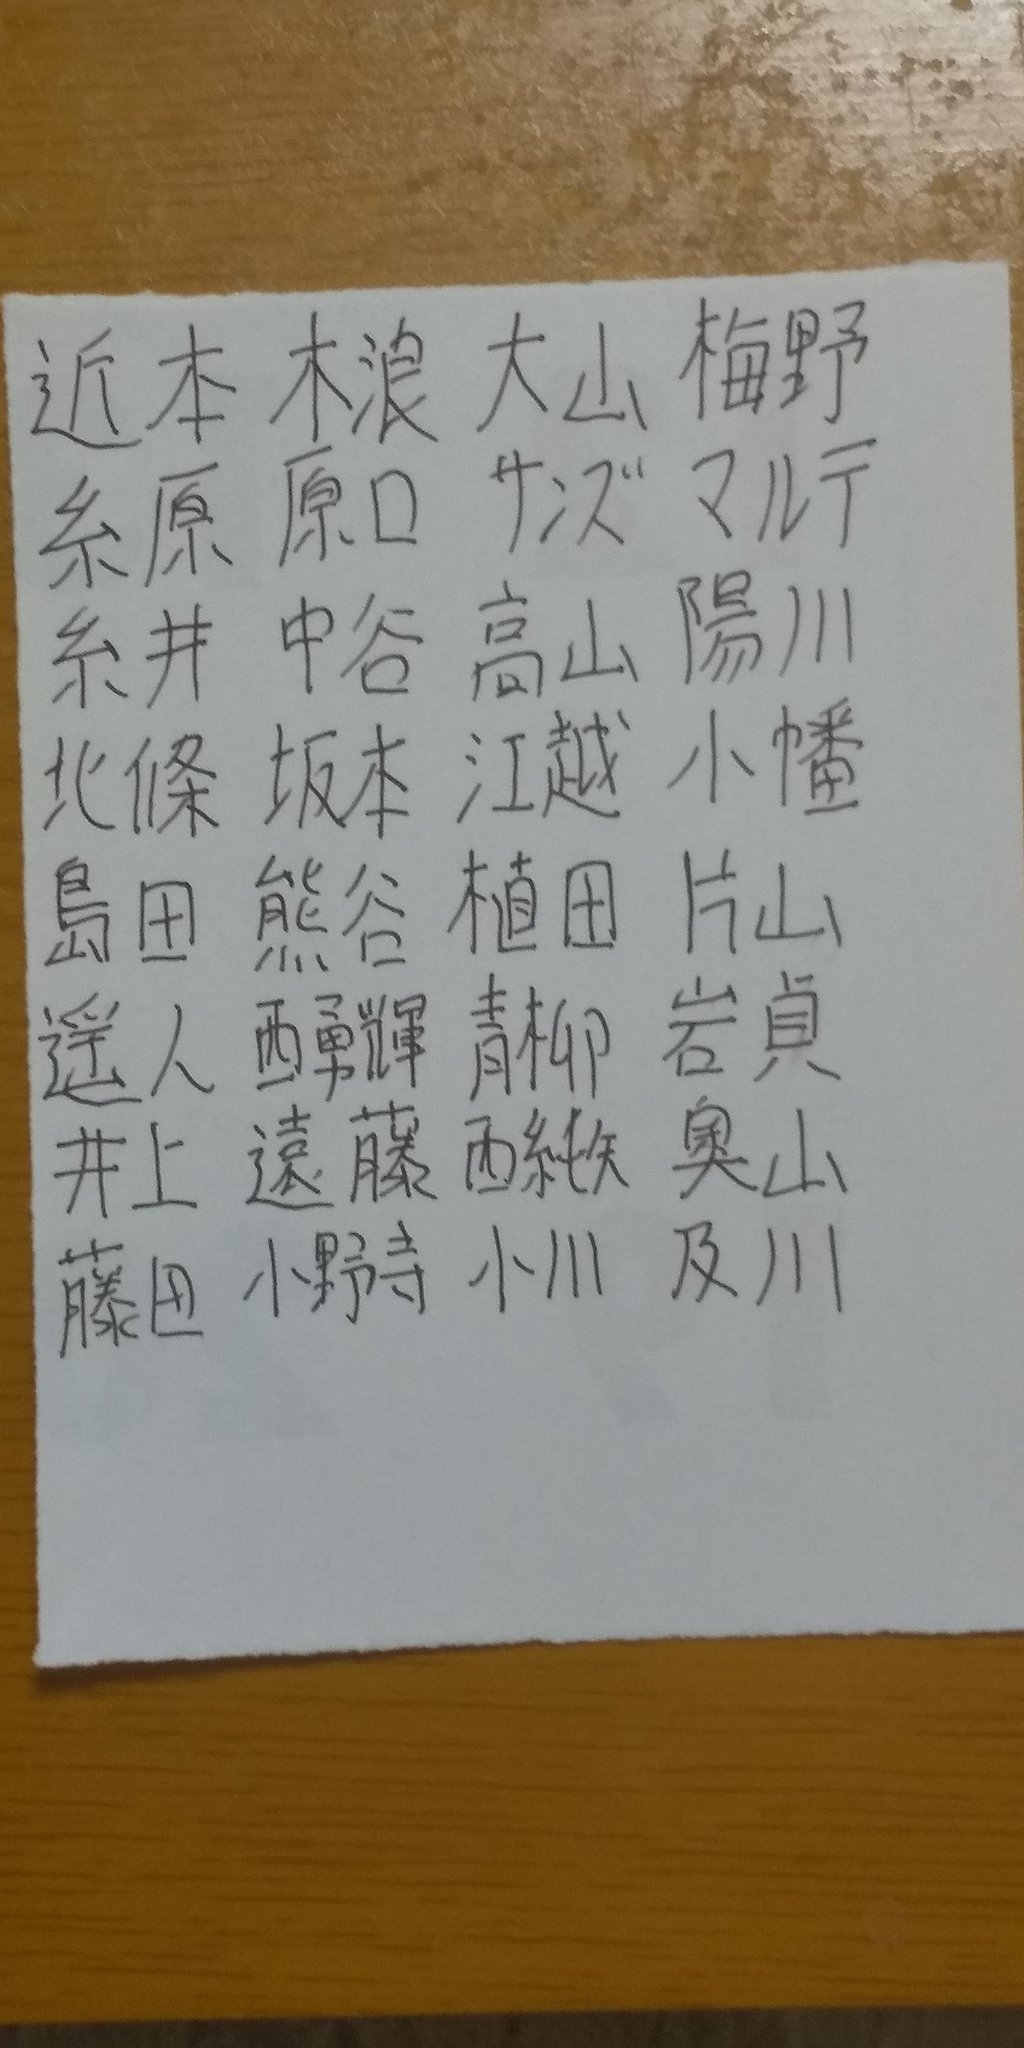 近本 木浪 大山 梅野
糸原 原口 サンズ マルテ
糸井 中谷 高山 陽川
北條 坂本 江越 小幡
島田 熊谷 植田 片山
遥人 西勇輝 青柳 岩貞
井上 遠藤 西純矢 奥山
藤田 小野寺 小川 及川